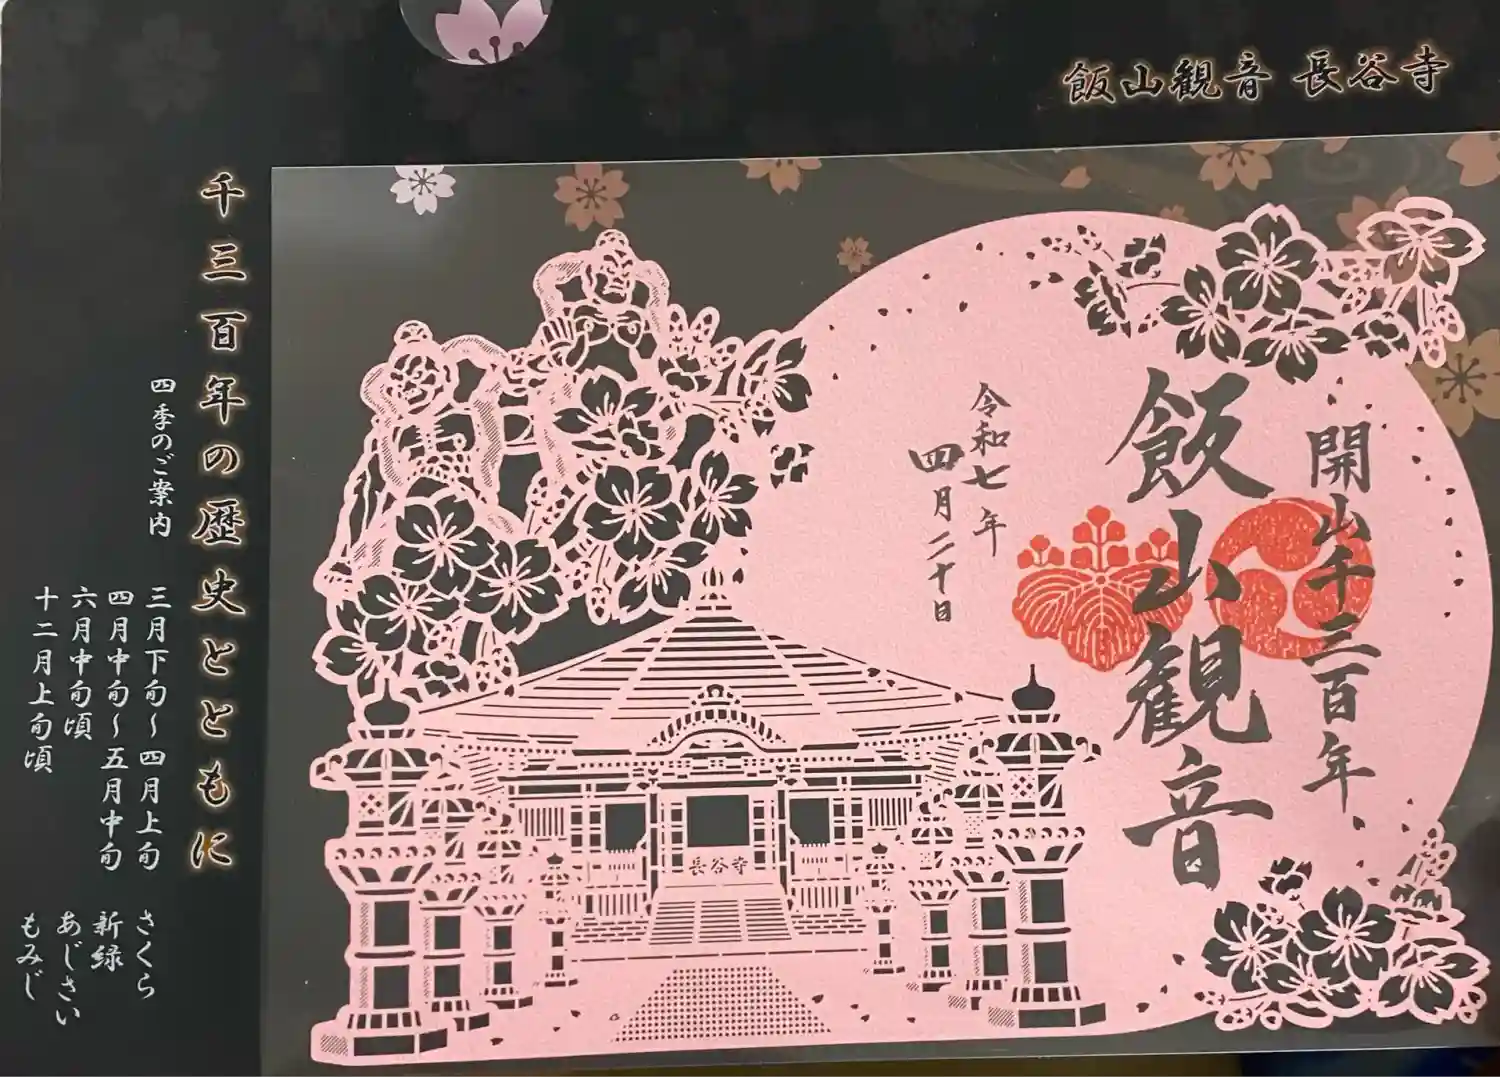 飯山観音 長谷寺
開山千三百年
飯山観音
令和七年
四月二十日
長谷寺
千三百年の歴史とともに
四季のご案内
三月下旬～四月上旬 さくら
四月中旬～五月中旬 新緑
六月中旬頃 あじさい
十二月上旬頃 もみじ